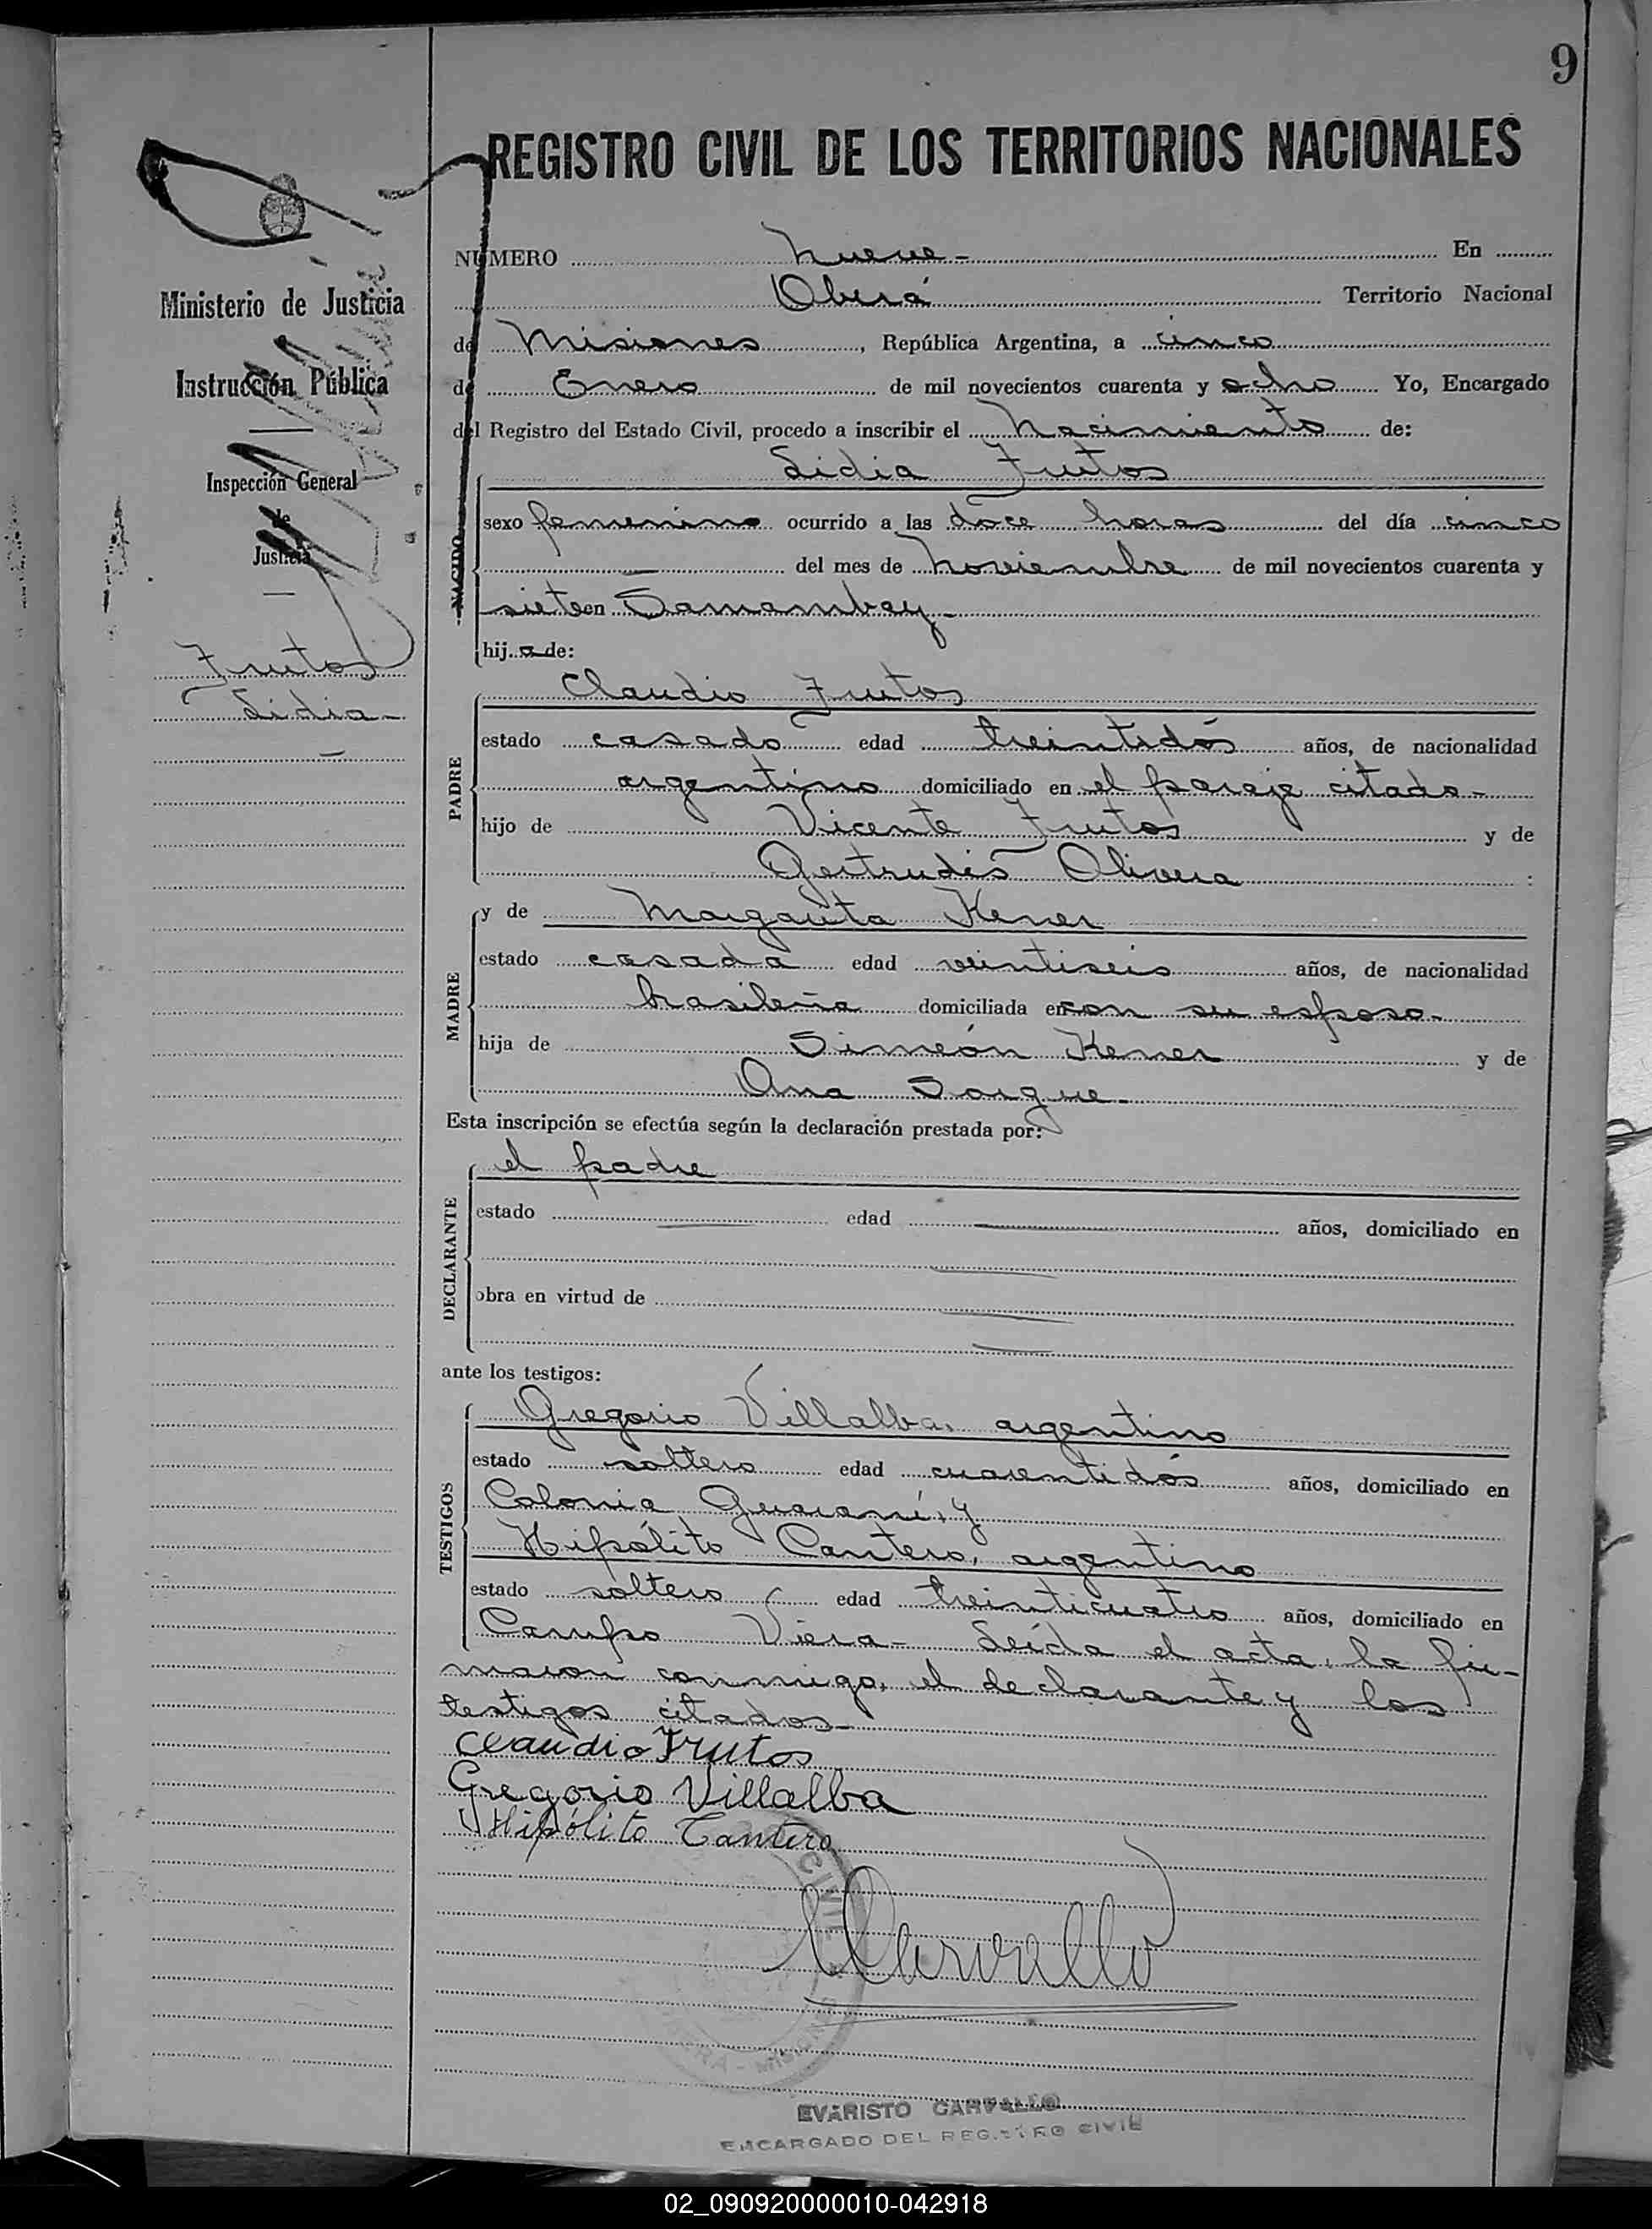 9
REGISTRO CIVIL DE LOS TERRITORIOS NACIONALES
Ministerio de Justicia
Instrucción Pública
Inspección General
de
Justicia
Frutos
Lidia-
NUMERO nueve- En
Oberá Territorio Nacional
de Misiones, República Argentina, a cinco
de Enero de mil novecientos cuarenta y ocho Yo, Encargado
del Registro del Estado Civil, procedo a inscribir el nacimiento de:
Lidia Frutos
NACIDO
sexo femenino ocurrido a las doce horas del día cinco
del mes de noviembre de mil novecientos cuarenta y
siete en Samambay-
hija de:
Claudio Frutos
PADRE
estado casado edad treintidós años, de nacionalidad
argentino domiciliado en el paraje citado-
hijo de Vicente Frutos y de
Gertrudis Olivera :
MADRE
y de Margarita Kener
estado casada edad veintiseis años, de nacionalidad
brasileña domiciliada en con su esposo-
hija de Simeón Kener y de
Ana Sorgue-
Esta inscripción se efectúa según la declaración prestada por:
DECLARANTE
el padre
estado edad años, domiciliado en
obra en virtud de
ante los testigos:
TESTIGOS
Gregorio Villalba, argentino
estado soltero edad cuarentidós años, domiciliado en
Colonia Guaraní, y
Hipólito Cantero, argentino
estado soltero edad treinticuatro años, domiciliado en
Campo Viera- Leída el acta, la fir-
maron conmigo, el declarante y los
testigos citados-
Claudio Frutos
Gregorio Villalba
Hipólito Cantero
CIVIL
MISIONES
Carvallo
EVARISTO CARVALLO
ENCARGADO DEL REGISTRO CIVIL
02_090920000010-042918